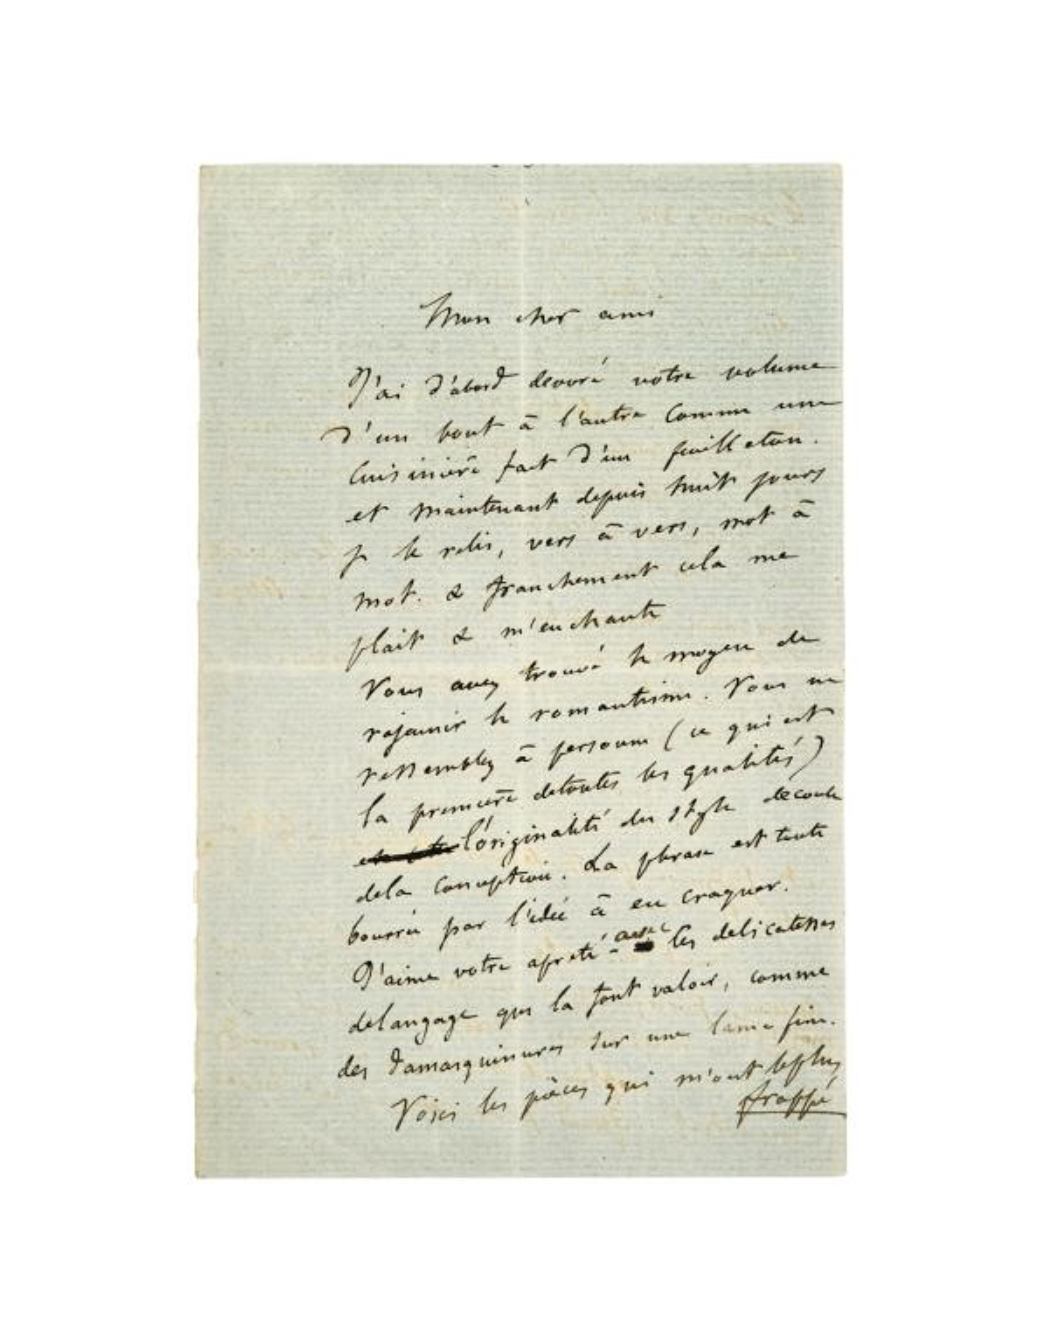 Mon cher ami
J'ai d'abord devoré votre volume
d'un bout à l'autre comme une
cuisinière fait d'un feuilleton.
et maintenant depuis huit jours
je le relis, vers à vers, mot à
mot. & franchement cela me
plait & m'enchante
Vous avez trouvé le moyen de
rajeunir le romantisme. Vous ne
ressemblez à personne (ce qui est
la première detoutes les qualités)
l'originalité du style découle
dela conception. La phrase est toute
bourrée par l'idée à en craquer.
J'aime votre apreté - avec les delicatesses
delangage qui la font valoir, comme
des damasquinures sur une lame fine.
Voici les pièces qui m'ont leplus
frappé